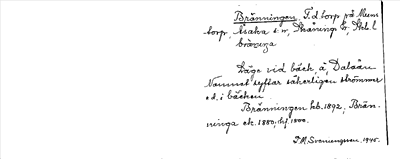 Bränningen F.d. torp på Mum
torp, Åsaka sn, Skåning hd, Skbl.
bränniga
Läge vid bäck å Dalaån
Namnet syftar säkerligen strömmen
e.d. i bäcken
Bränningen hb. 1892, Brän-
ninga ek. 1880, hf. 1800.
P.M. Svenungsson, 1945.